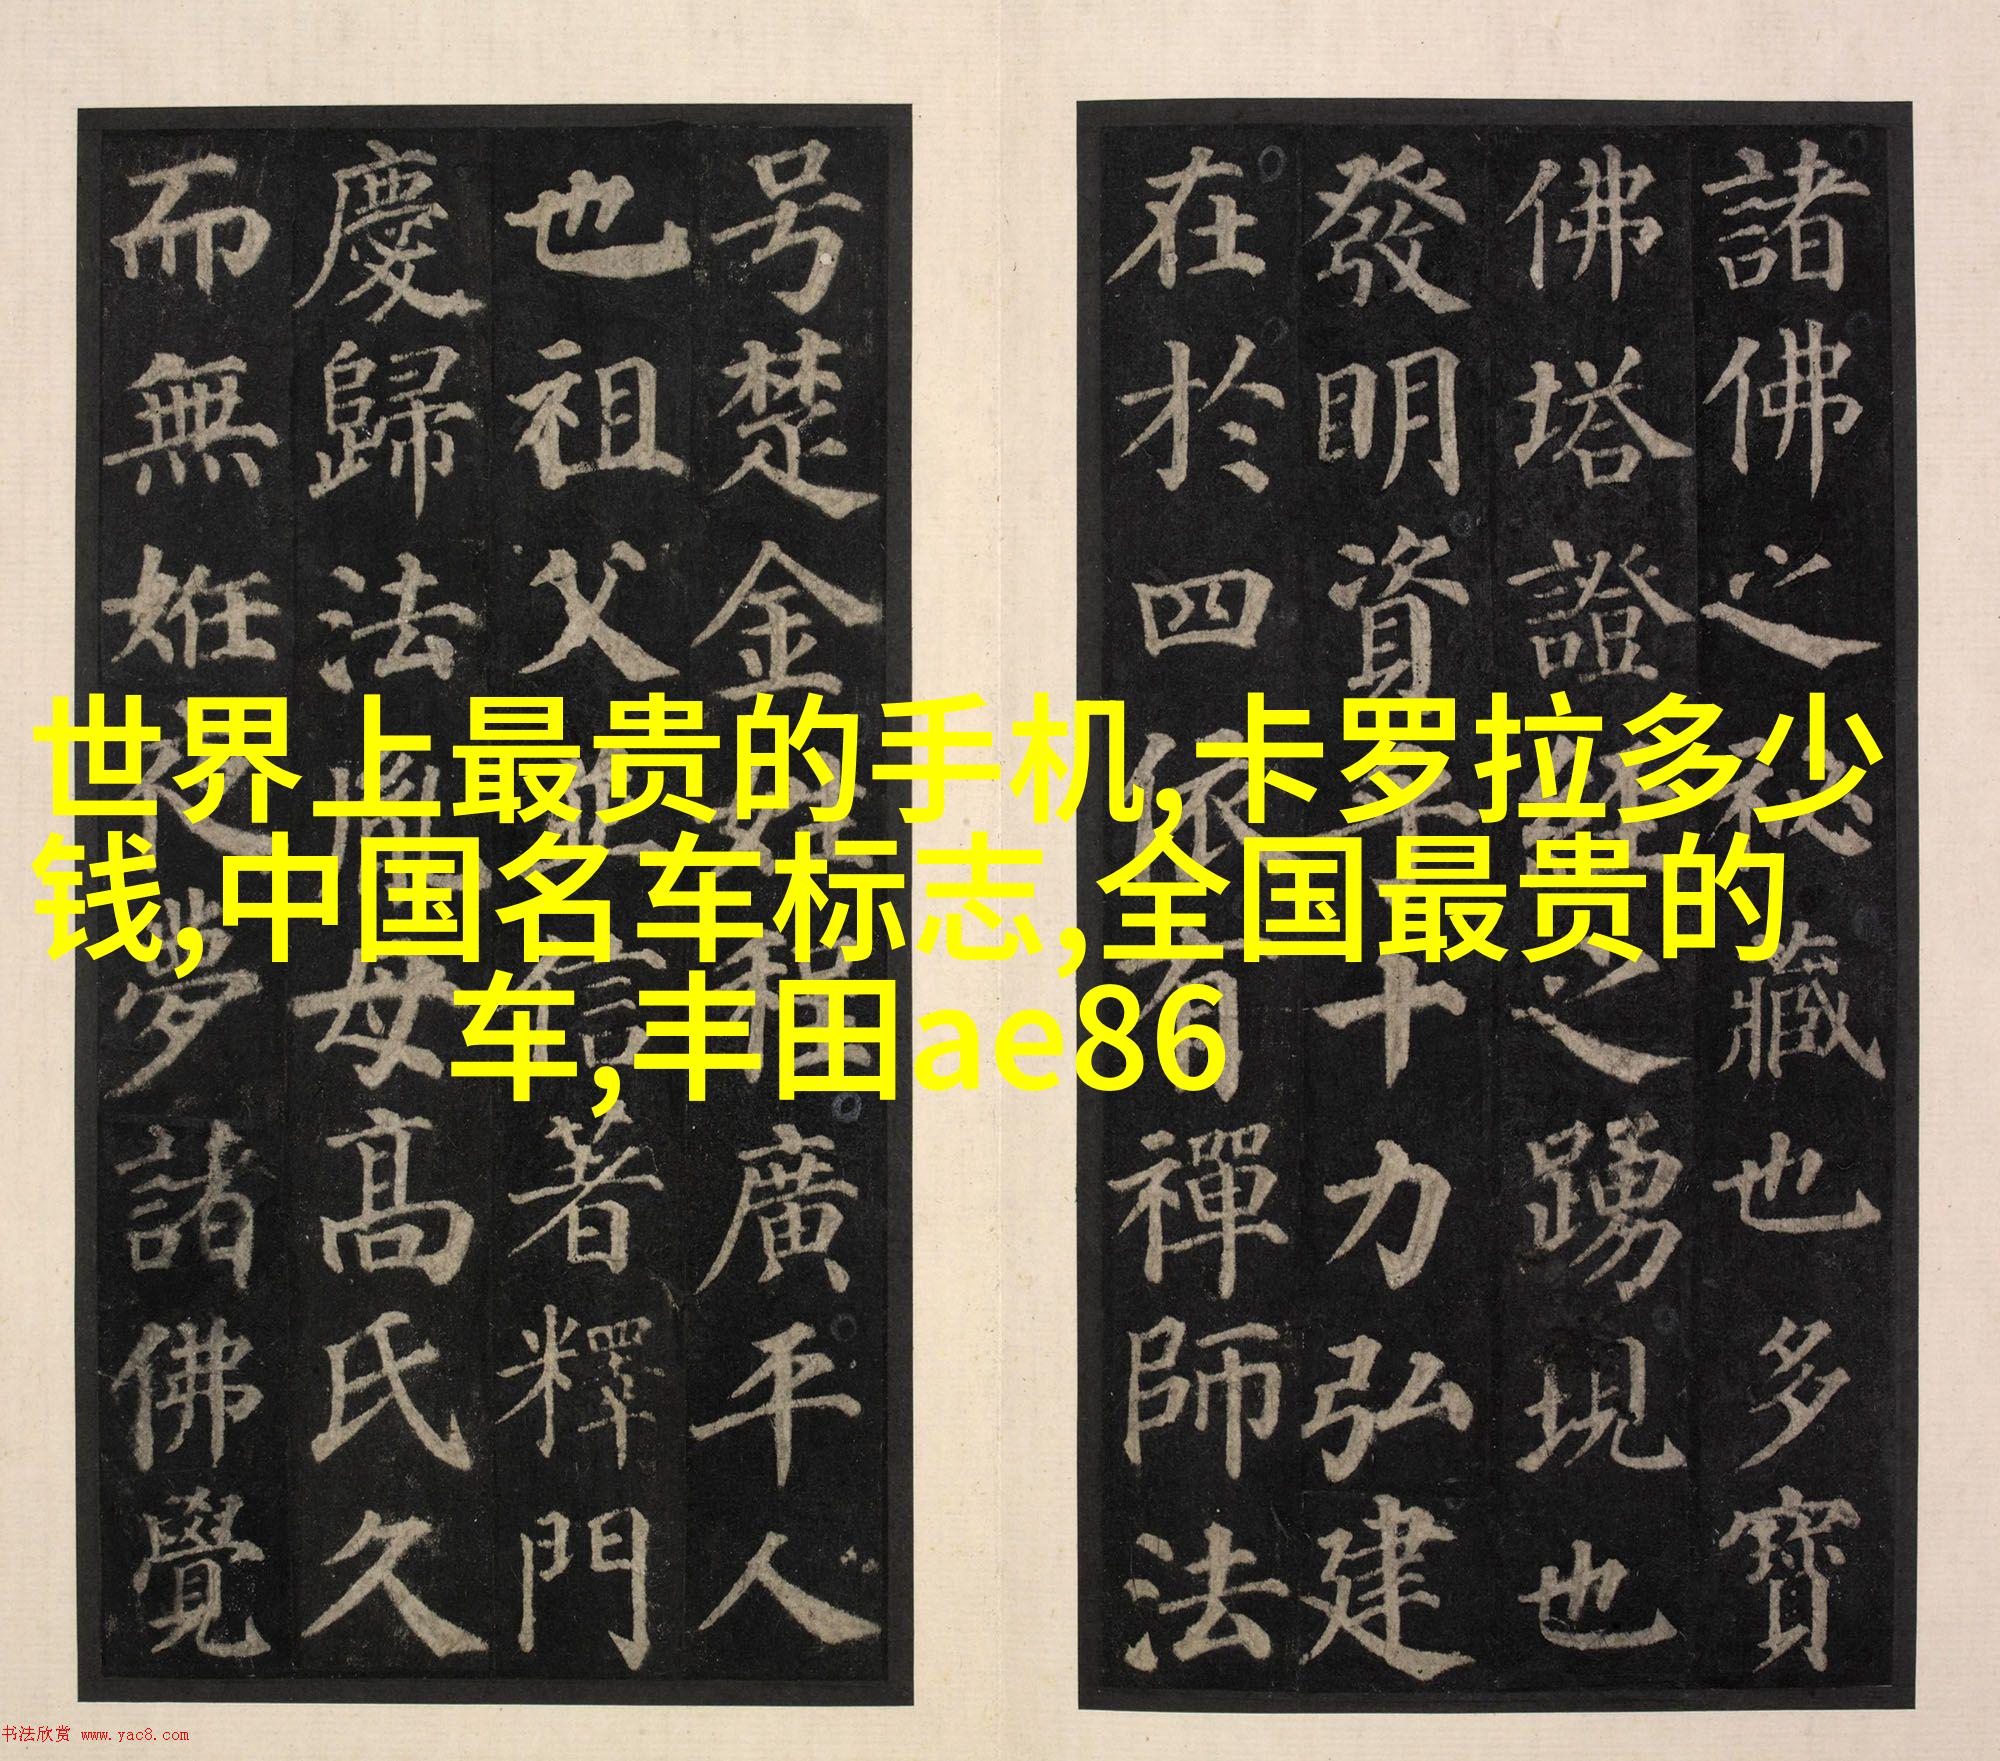 世界上最贵的手机,卡罗拉多少
钱,中国名车标志,全国最贵的
车,丰田ae86
諸佛之秘藏也多寶
佛塔證經之踴現也
發明資乎十力弘建
在於四依有禪師法
号楚金姓程廣平人
也祖父並信著釋門
慶歸法胤母高氏久
而無姙夜夢諸佛覺
书法欣赏 www.yac8.com